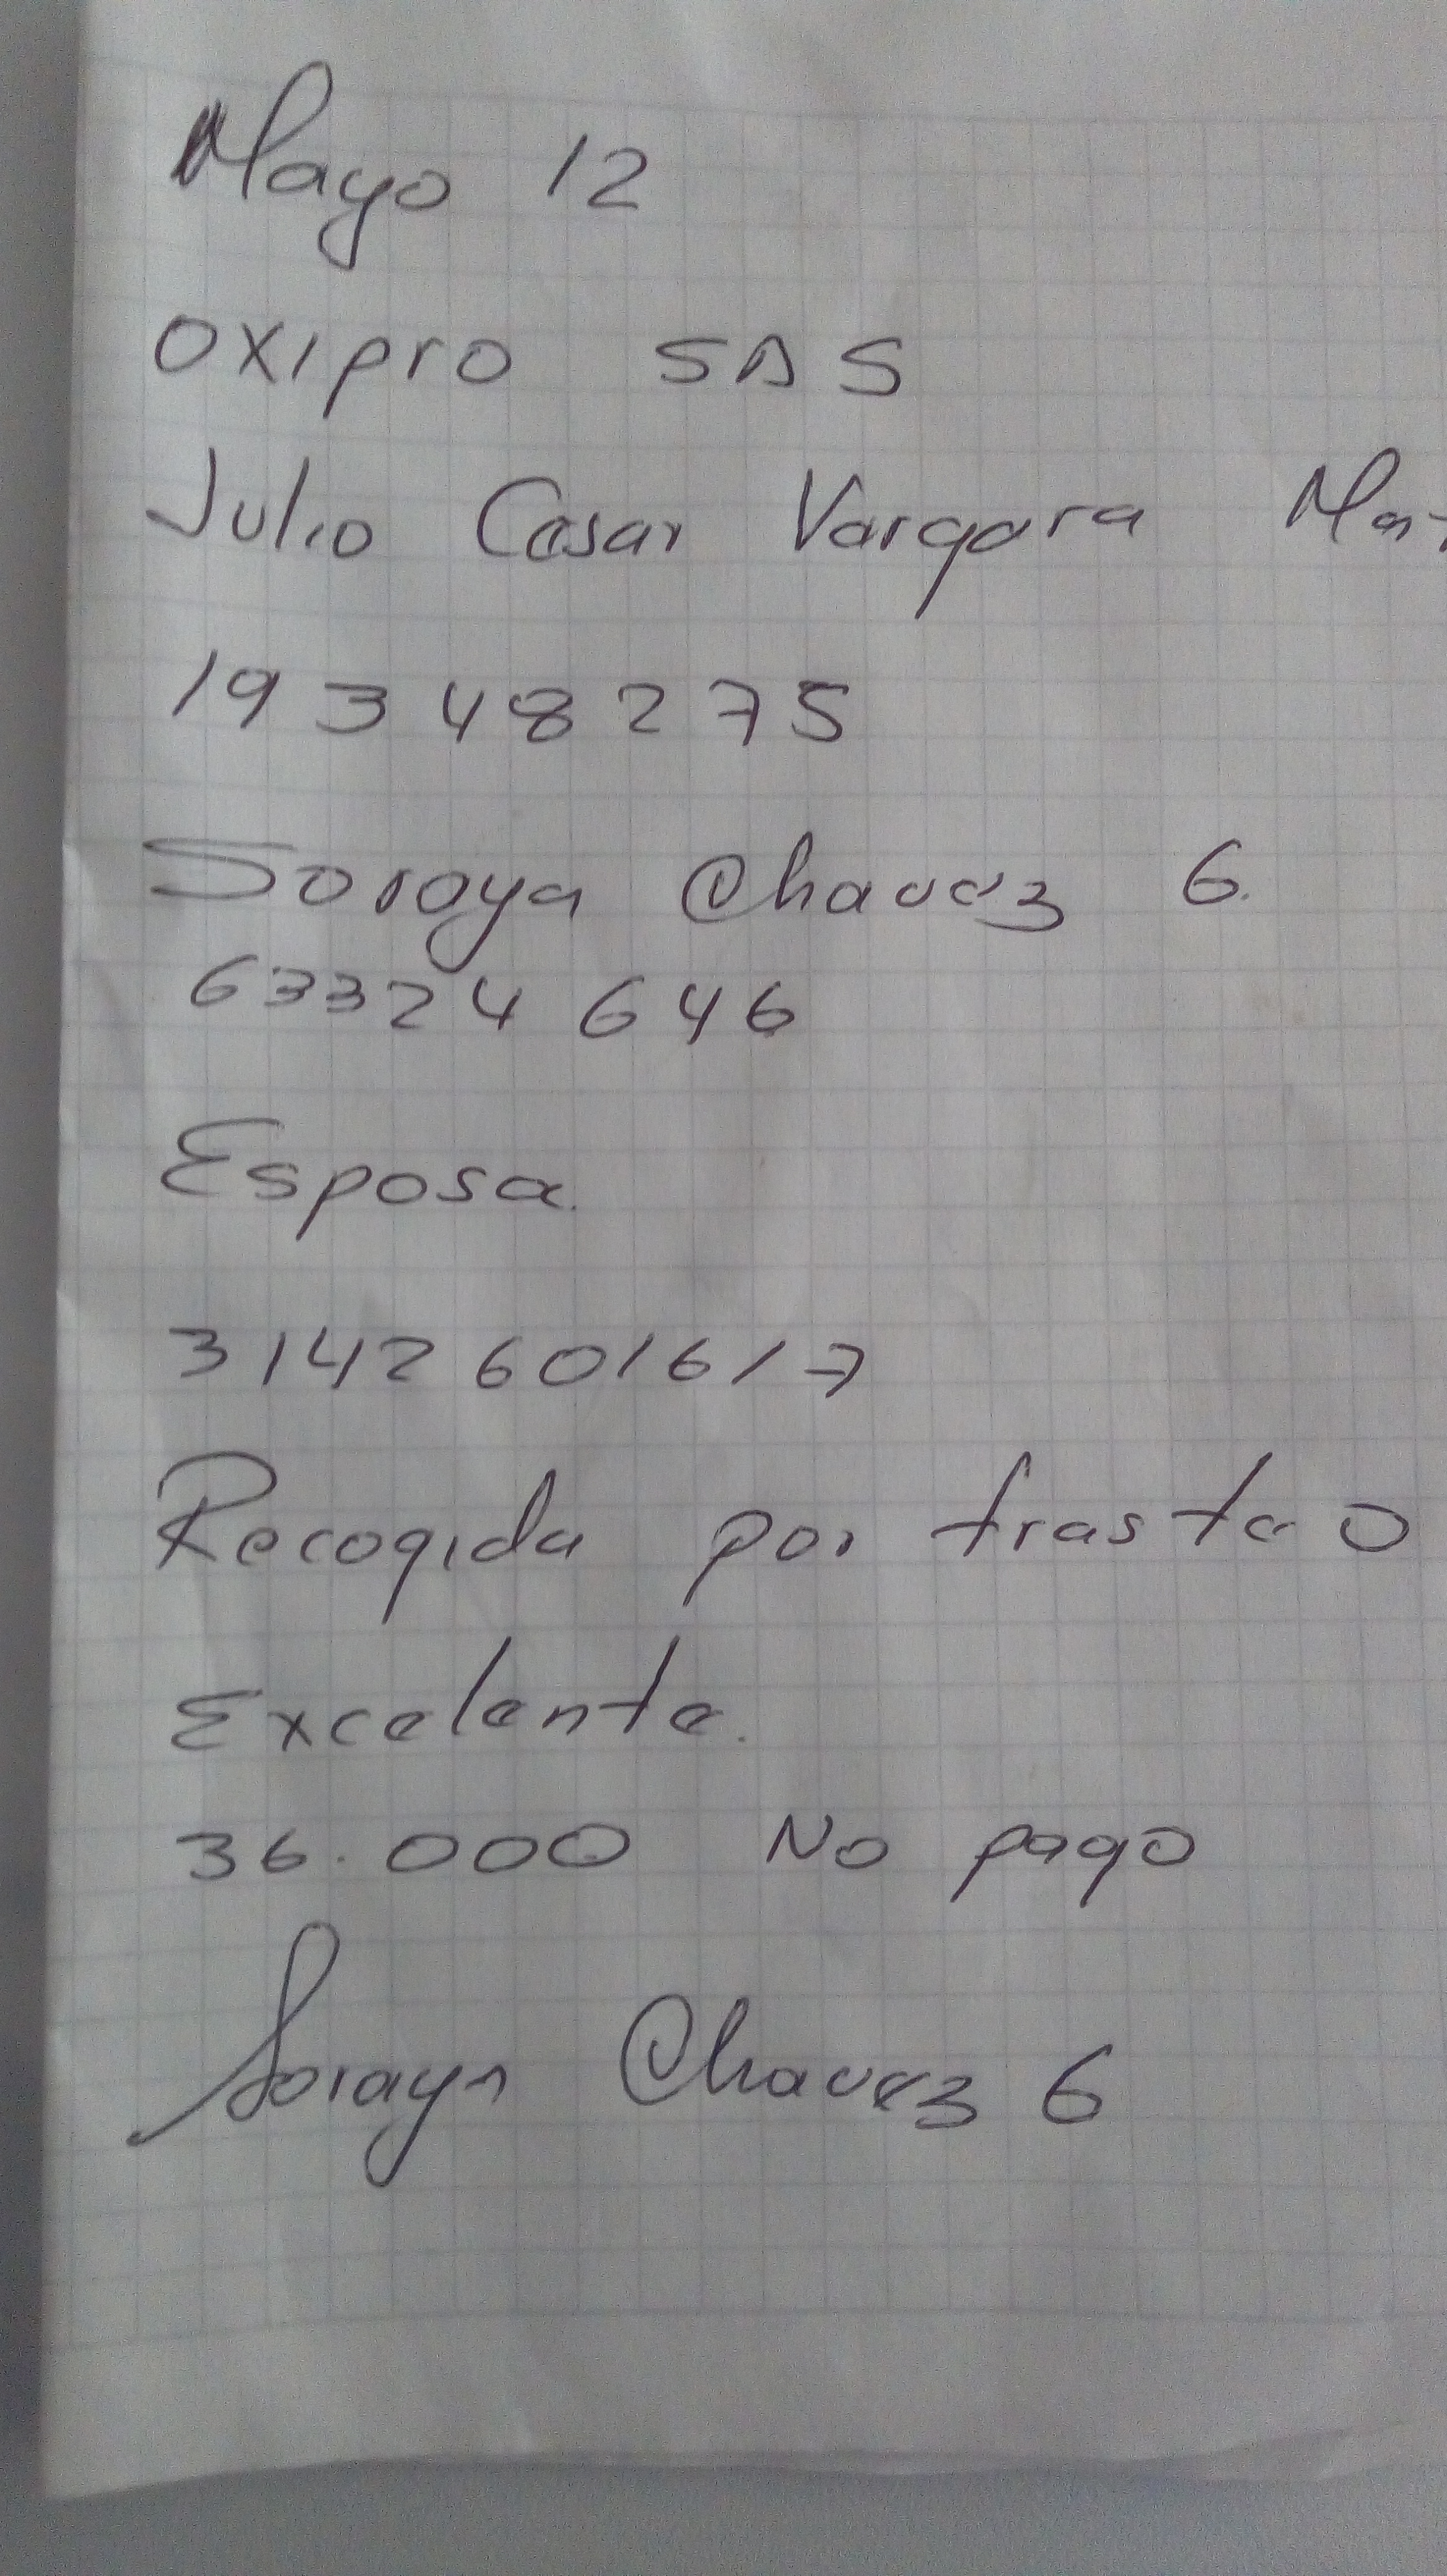 Mayo 12
OXIpro SAS
Julio Cesar Vergara
19348275
Soraya Chavez G.
63324646
Esposa.
3142601617
Recogida por trasteo
Excelente.
36.000 No pago
Soraya Chavez G